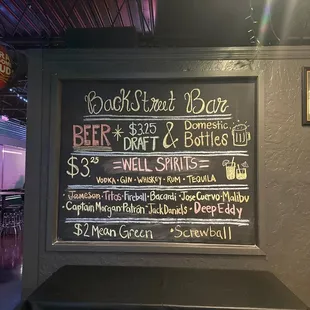 BackStreet Bar
BEER * $3.25 DRAFT & Domestic Bottles
$3.25 =WELL SPIRITS=
VODKA • GIN • WHISKEY • RUM • TEQUILA
Jameson • Titos • Fireball • Bacardi • Jose Cuervo • Malibu
• Captain Morgan • Patrón • Jack Daniels • Deep Eddy
$2 Mean Green • Screwball